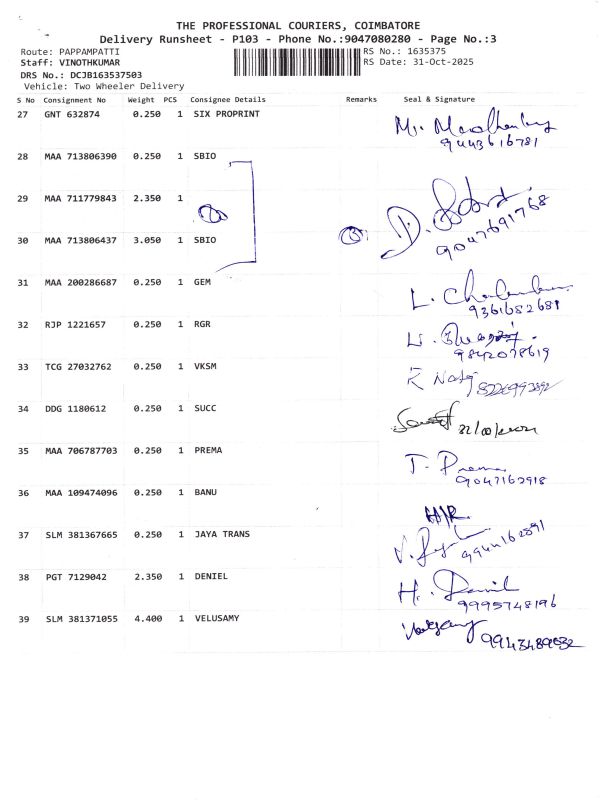 THE PROFESSIONAL COURIERS, COIMBATORE
Delivery Runsheet - P103 - Phone No.:9047080280 - Page No.:3
Route: PAPPAMPATTI RS No.: 1635375
Staff: VINOTHKUMAR RS Date: 31-Oct-2025
DRS No.: DCJB163537503
Vehicle: Two Wheeler Delivery
S No Consignment No Weight PCS Consignee Details Remarks Seal & Signature
27 GNT 632874 0.250 1 SIX PROPRINT
9443616781
28 MAA 713806390 0.250 1 SBIO
29 MAA 711779843 2.350 1
9047691768
30 MAA 713806437 3.050 1 SBIO
31 MAA 200286687 0.250 1 GEM
9361682681
32 RJP 1221657 0.250 1 RGR
9842078619
33 TCG 27032762 0.250 1 VKSM
34 DDG 1180612 0.250 1 SUCC
35 MAA 706787703 0.250 1 PREMA T. Prema
9047162918
36 MAA 109474096 0.250 1 BANU
37 SLM 381367665 0.250 1 JAYA TRANS
38 PGT 7129042 2.350 1 DENIEL
9995748196
39 SLM 381371055 4.400 1 VELUSAMY